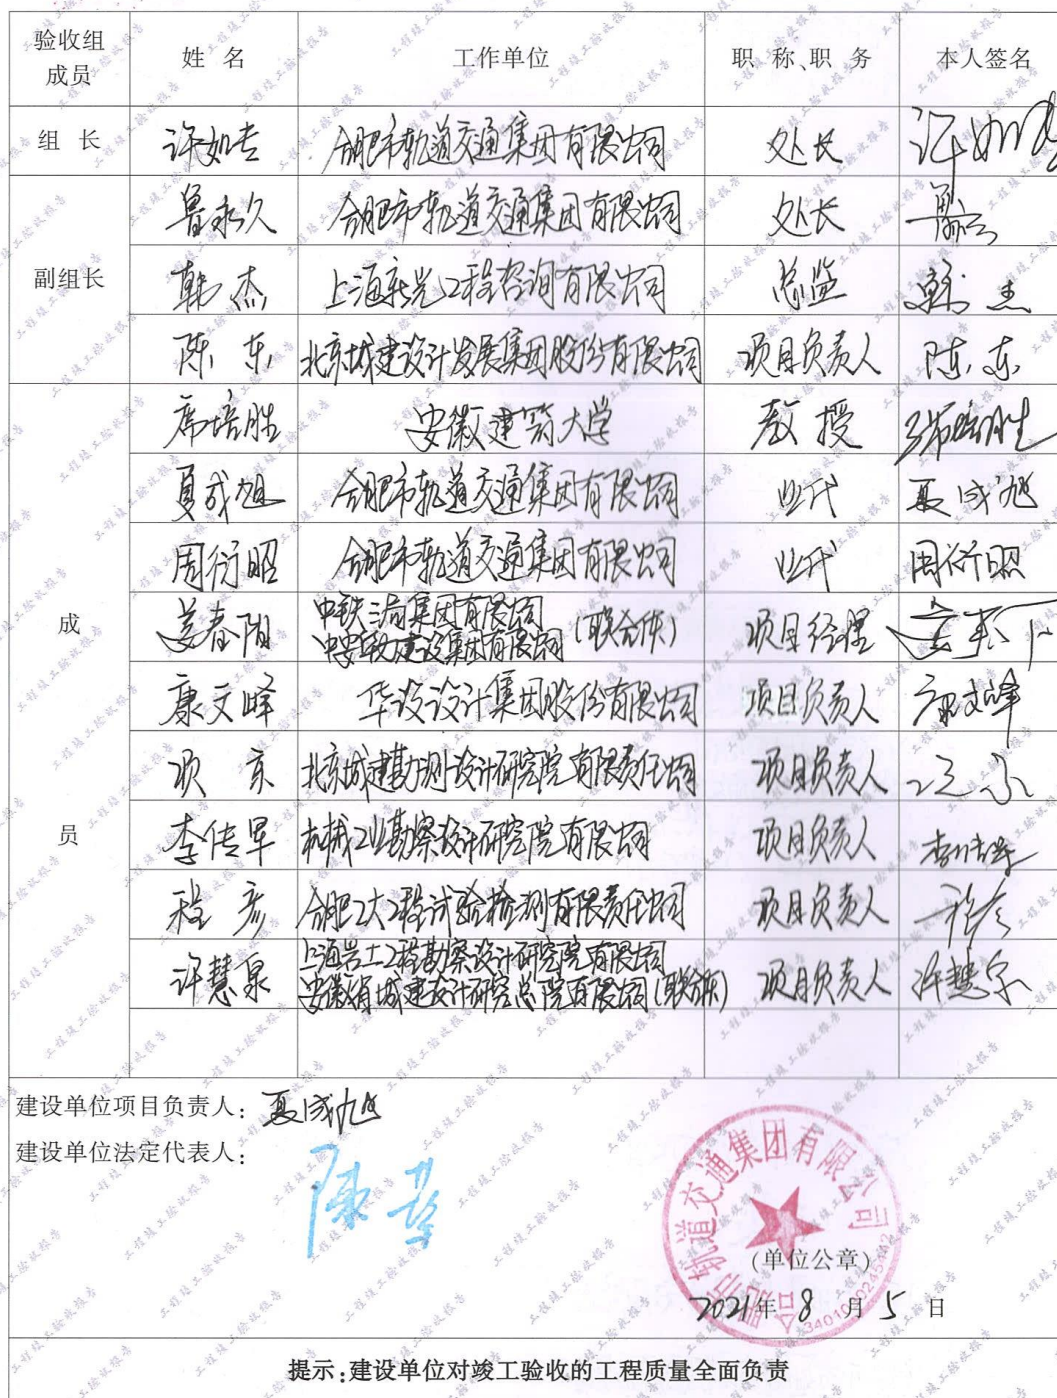 验收组成员 姓 名 工作单位 职 称、职 务 本人签名
组 长 许如专 合肥市轨道交通集团有限公司 处长
鲁永久 合肥市轨道交通集团有限公司 处长
副组长 韩杰 上海宏岩工程咨询有限公司 总监 韩杰
陈东 北京城建设计发展集团股份有限公司 项目负责人 陈东
席培胜 安徽建筑大学 教授 席培胜
夏成旭 合肥市轨道交通集团有限公司 业代 夏成旭
周衍昭 合肥市轨道交通集团有限公司 业代 周衍昭
成 姜春阳 中铁三局集团有限公司
中安联建设集团有限公司(联合体) 项目经理
康文峰 华设设计集团股份有限公司 项目负责人 康文峰
项京 北京城建勘测设计研究院有限责任公司 项目负责人
员 李传军 机械工业勘察设计研究院有限公司 项目负责人 李传军
程彦 合肥工大工程试验检测有限责任公司 项目负责人 程彦
许慧泉 上海岩土工程勘察设计研究院有限公司
安徽省城建设计研究总院有限公司(联合体) 项目负责人 许慧泉
建设单位项目负责人:夏成旭
建设单位法定代表人:
合肥市轨道交通集团有限公司
(单位公章)
2021年8月5日
提示:建设单位对竣工验收的工程质量全面负责
工程竣工验收报告